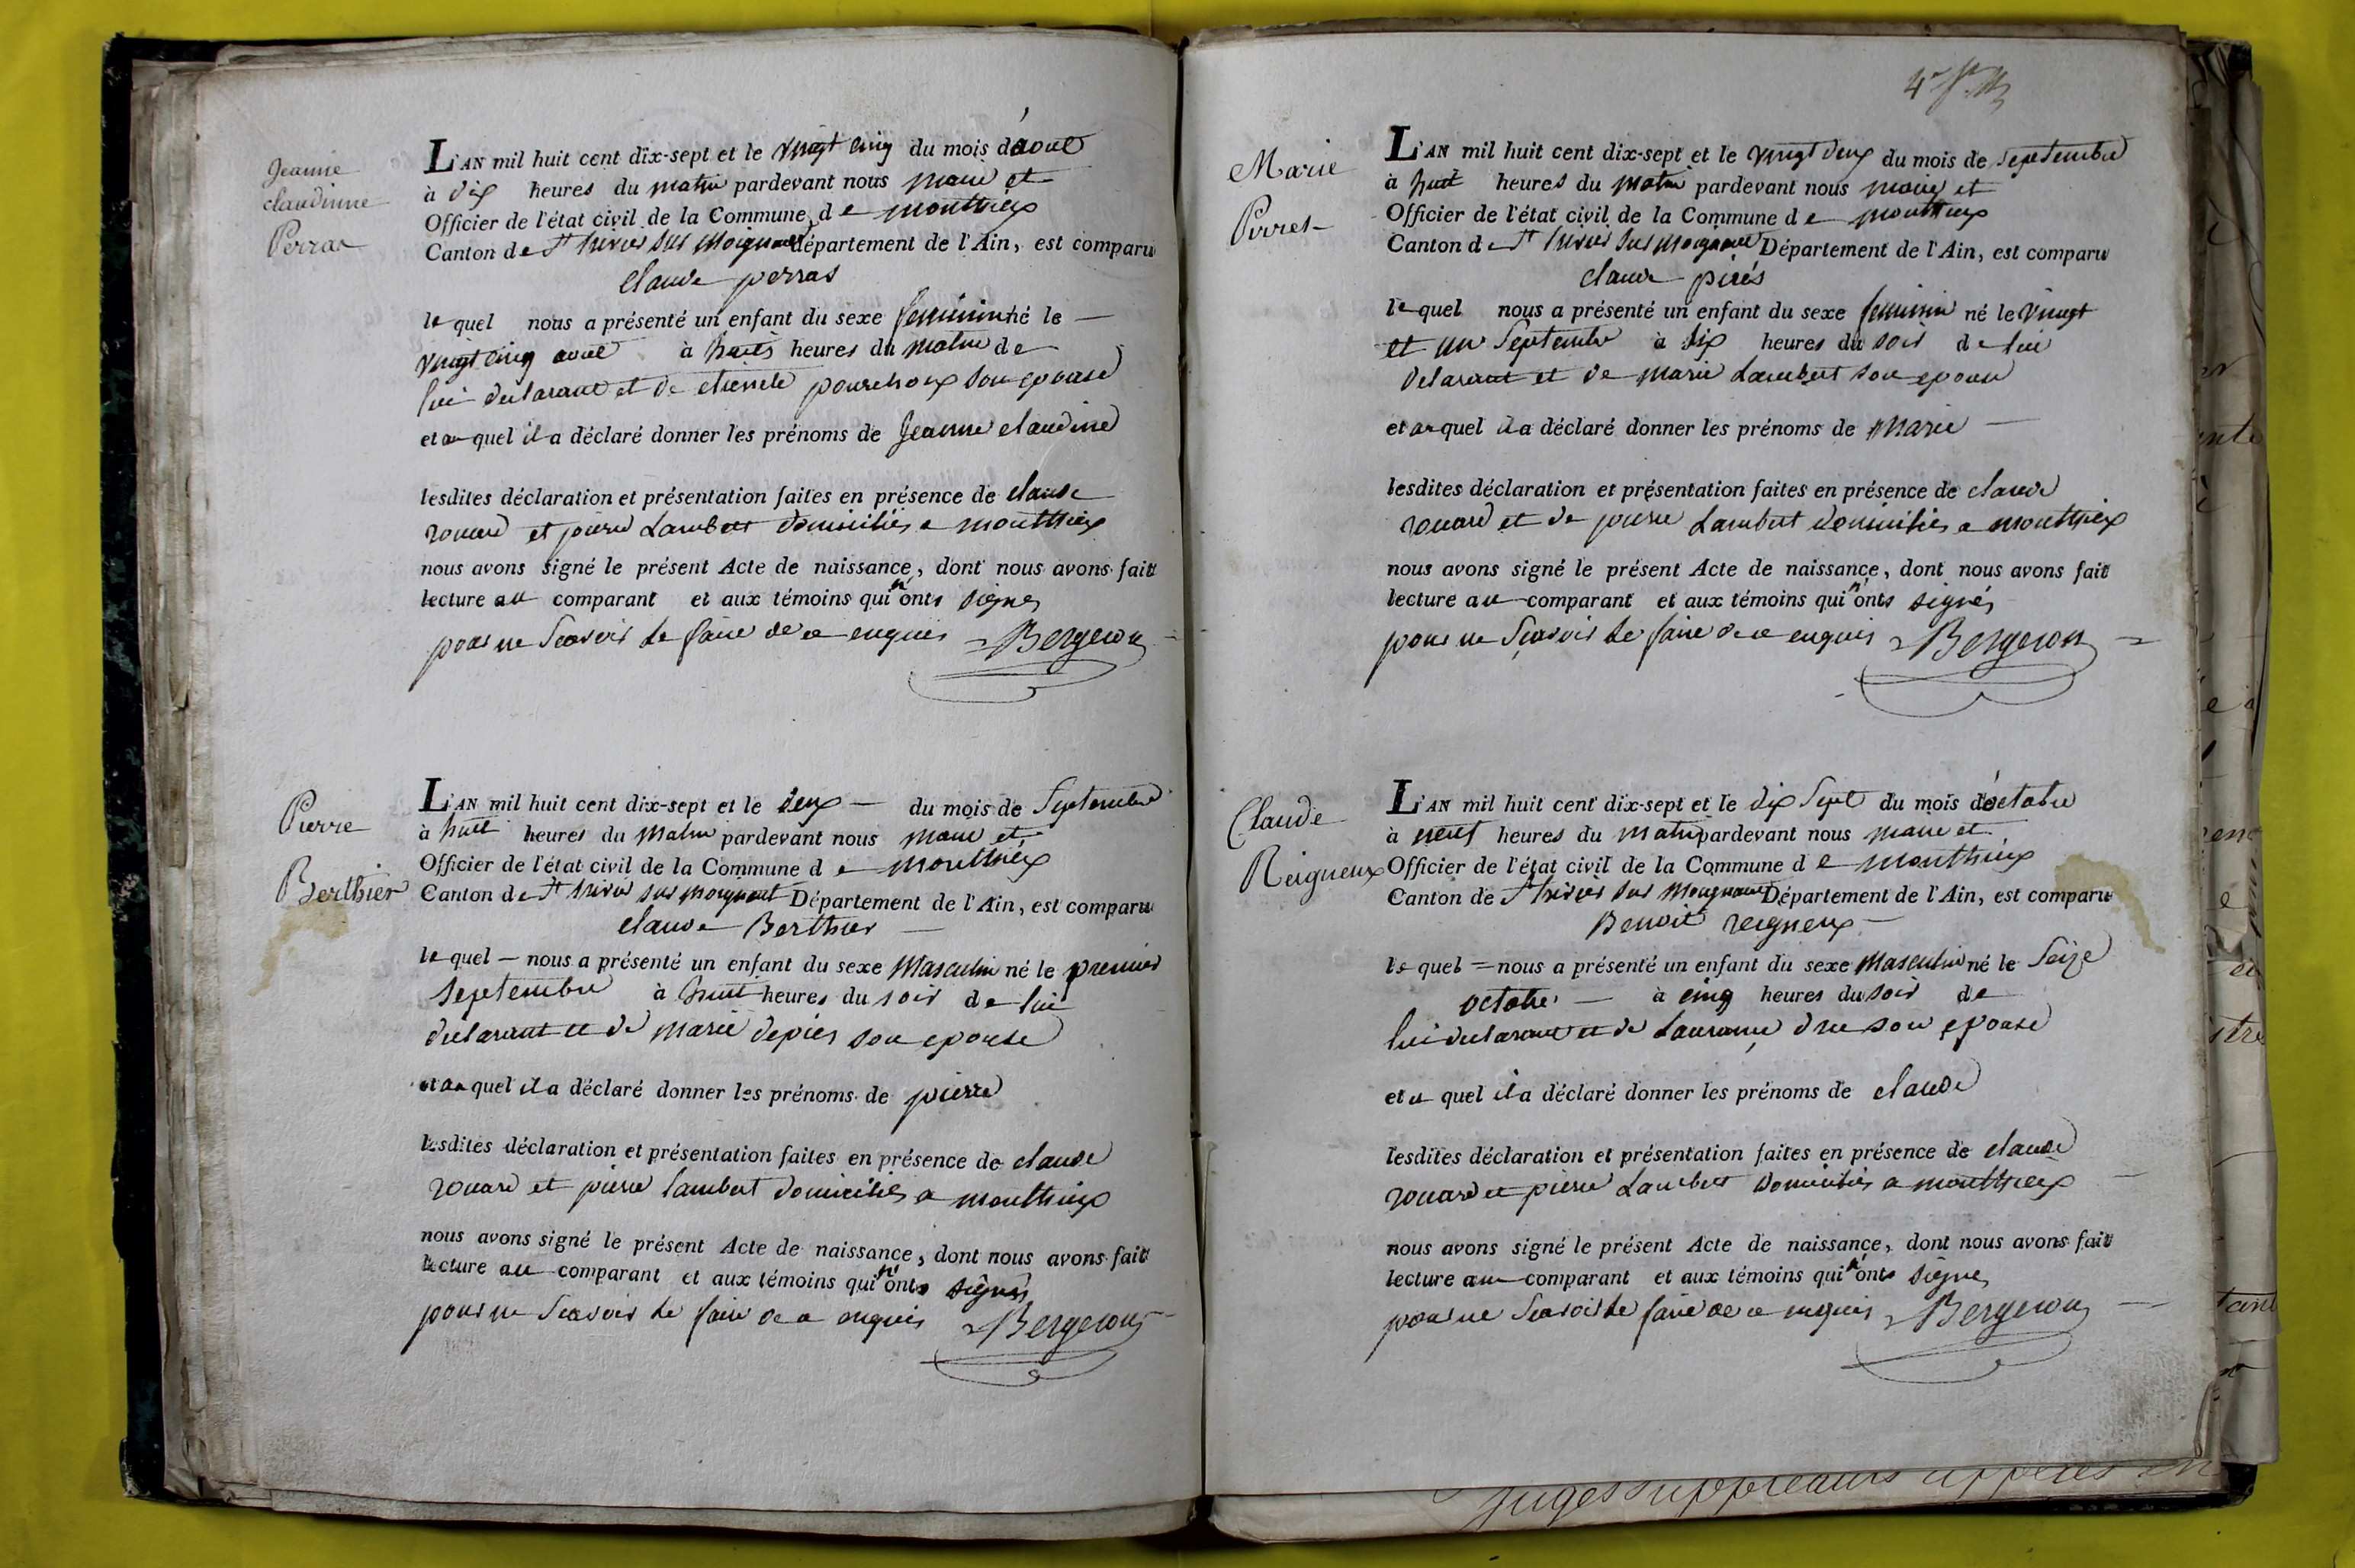 Jeanne
claudinne
Perras
L'AN mil huit cent dix-sept et le vingt cinq du mois d'aout
à dix heures du matin pardevant nous maire et
Officier de l'état civil de la Commune de monthieux
Canton de St trivier sur moignant département de l'Ain, est comparu
claude perras
lequel nous a présenté un enfant du sexe feminin né le —
vingt cinq aout à huits heures du matin de
lui declarant et de son epouse
et auquel il a déclaré donner les prénoms de Jeanne claudine
lesdites déclaration et présentation faites en présence de claude
rouard et pierre Lambert domiciliés a monthieux
nous avons signé le présent Acte de naissance, dont nous avons fait
lecture au comparant et aux témoins qui n'onts signés
pour ne Scavoir le faire de ce enquis = Bergeron
Pierre
Berthier
L'AN mil huit cent dix-sept et le deux — du mois de Septembre
à huit heures du matin pardevant nous maire et
Officier de l'état civil de la Commune de monthieux
Canton de St trivier sur moignant Département de l'Ain, est comparu
claude Berthier —
lequel — nous a présenté un enfant du sexe Masculin né le premier
Septembre à huit heures du soir de lui
declarant et de marie depies son epouse
et auquel il a déclaré donner les prénoms de pierre
lesdites déclaration et présentation faites en présence de claude
rouard et pierre lambert domiciliés a monthieux
nous avons signé le présent Acte de naissance, dont nous avons fait
lecture au comparant et aux témoins qui n'onts signés
pour ne Scavoir le faire de ce enquis = Bergeron
Marie
Perret
L'AN mil huit cent dix-sept et le vingt deux du mois de Septembre
à huit heures du matin pardevant nous maire et
Officier de l'état civil de la Commune de monthieux
Canton de St trivier sur moignant Département de l'Ain, est comparu
claude pirés
lequel nous a présenté un enfant du sexe feminin né le vingt
et un Septembre à dix heures du soir de lui
delarant et de marie Lambert son epouse
et auquel il a déclaré donner les prénoms de Marie —
lesdites déclaration et présentation faites en présence de claude
rouard et de pierre Lambert domiciliés a monthieux
nous avons signé le présent Acte de naissance, dont nous avons fait
lecture au comparant et aux témoins qui n'onts signés
pour ne Sçavoir le faire de ce enquis = Bergeron =
Claude
Reigneux
L'AN mil huit cent dix-sept et le dix Sept du mois d'octobre
à neuf heures du matin pardevant nous maire et
Officier de l'état civil de la Commune de monthieux
Canton de St trivier sur moignant Département de l'Ain, est comparu
Benoit reigneux —
lequel = nous a présenté un enfant du sexe Masculin né le Seize
octobre — à cinq heures du soir de
lui declarant et de son epouse
et au quel il a déclaré donner les prénoms de claude
lesdites déclaration et présentation faites en présence de claude
rouard et pierre Lambert domiciliés a monthieux
nous avons signé le présent Acte de naissance, dont nous avons fait
lecture au comparant et aux témoins qui n'onts signés
pour ne Scavoir le faire de ce enquis = Bergeron